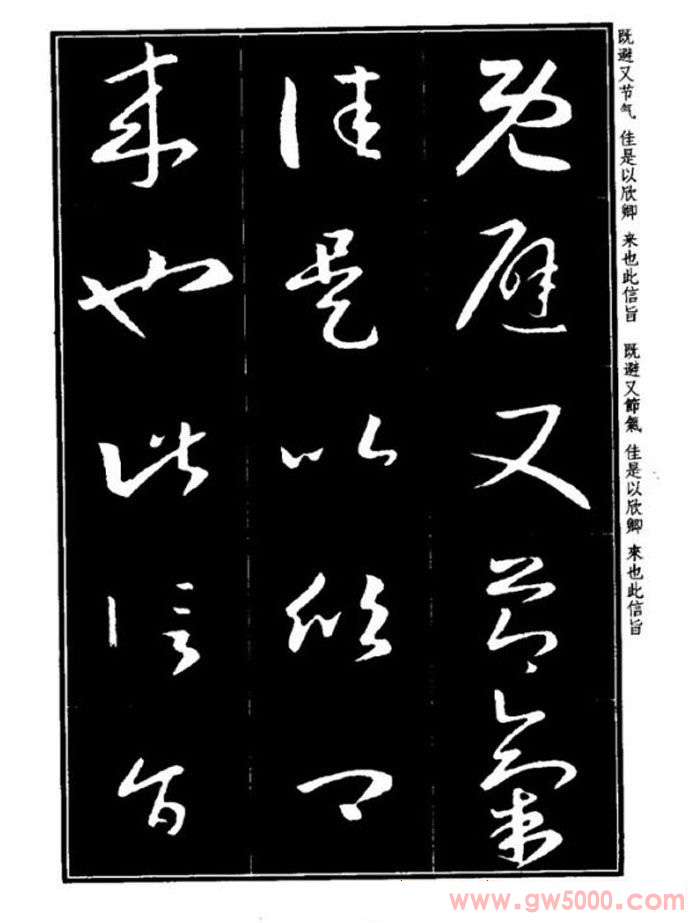 既避又節氣
佳是以欣卿
來也此信旨
既避又节气 佳是以欣卿 来也此信旨 既避又節氣 佳是以欣卿 來也此信旨
www.gw5000.com